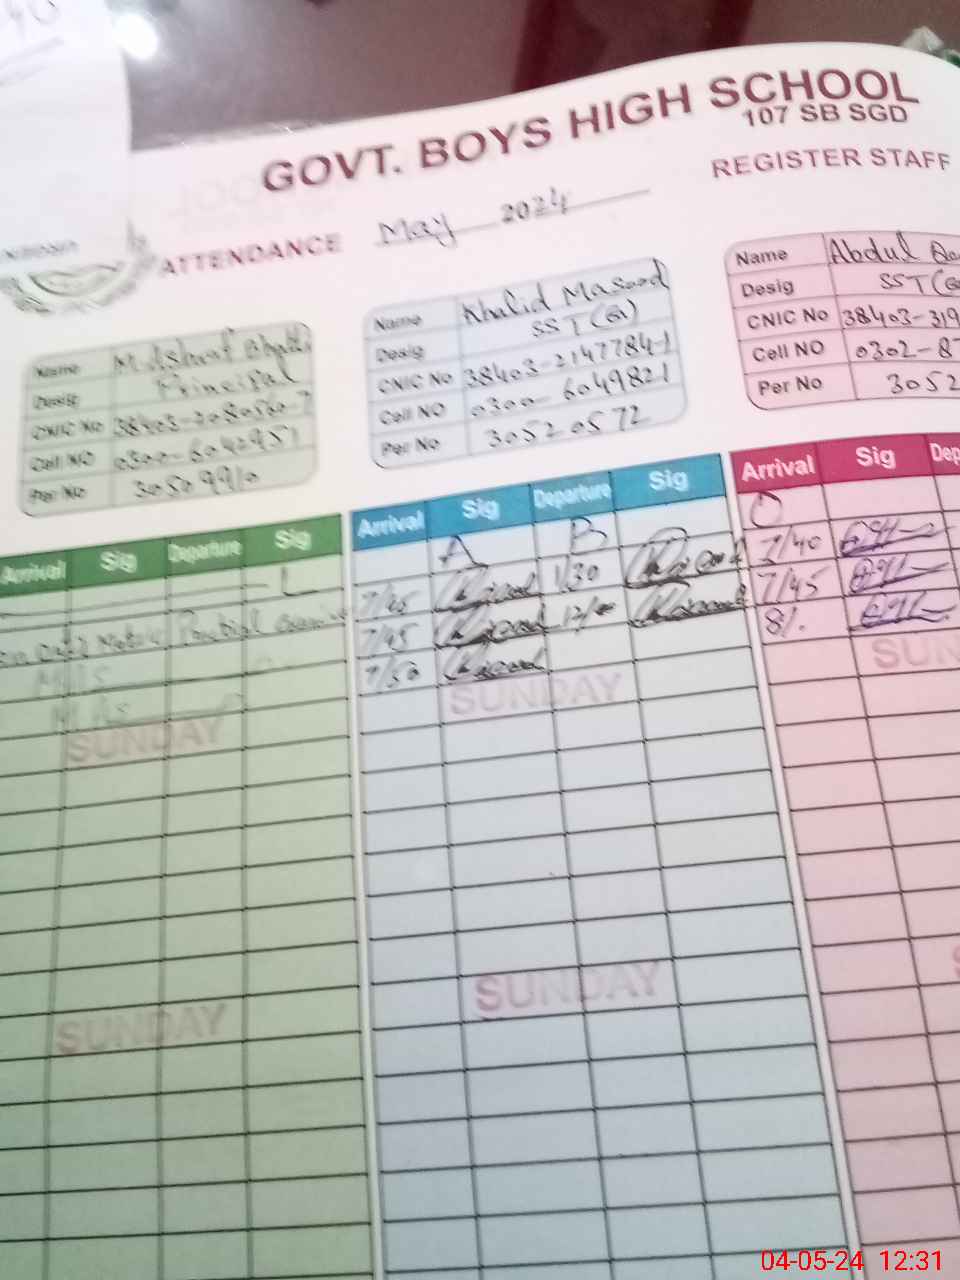 GOVT. BOYS HIGH SCHOOL
107 SB SGD
ATTENDANCE May 2024 REGISTER STAFF
Name M. Ashraf Bhatti
Desig Principal
CNIC No 38403-2080560-7
Cell NO 0300-6040951
Per No 30509910
Name Khalid Masood
Desig SST (G)
CNIC No 38403-2147784-1
Cell NO 0300-6049821
Per No 30520572
Name Abdul
Desig SST (
CNIC No 38403-319
Cell NO 0302-8
Per No 3052
Arrival Sig Departure Sig
L
SUNDAY
SUNDAY
Arrival Sig Departure Sig
A B
7/45 1/30
7/45 12/
7/50
SUNDAY
SUNDAY
Arrival Sig Dep
7/40
7/45
8/.
SUN
S
04-05-24 12:31